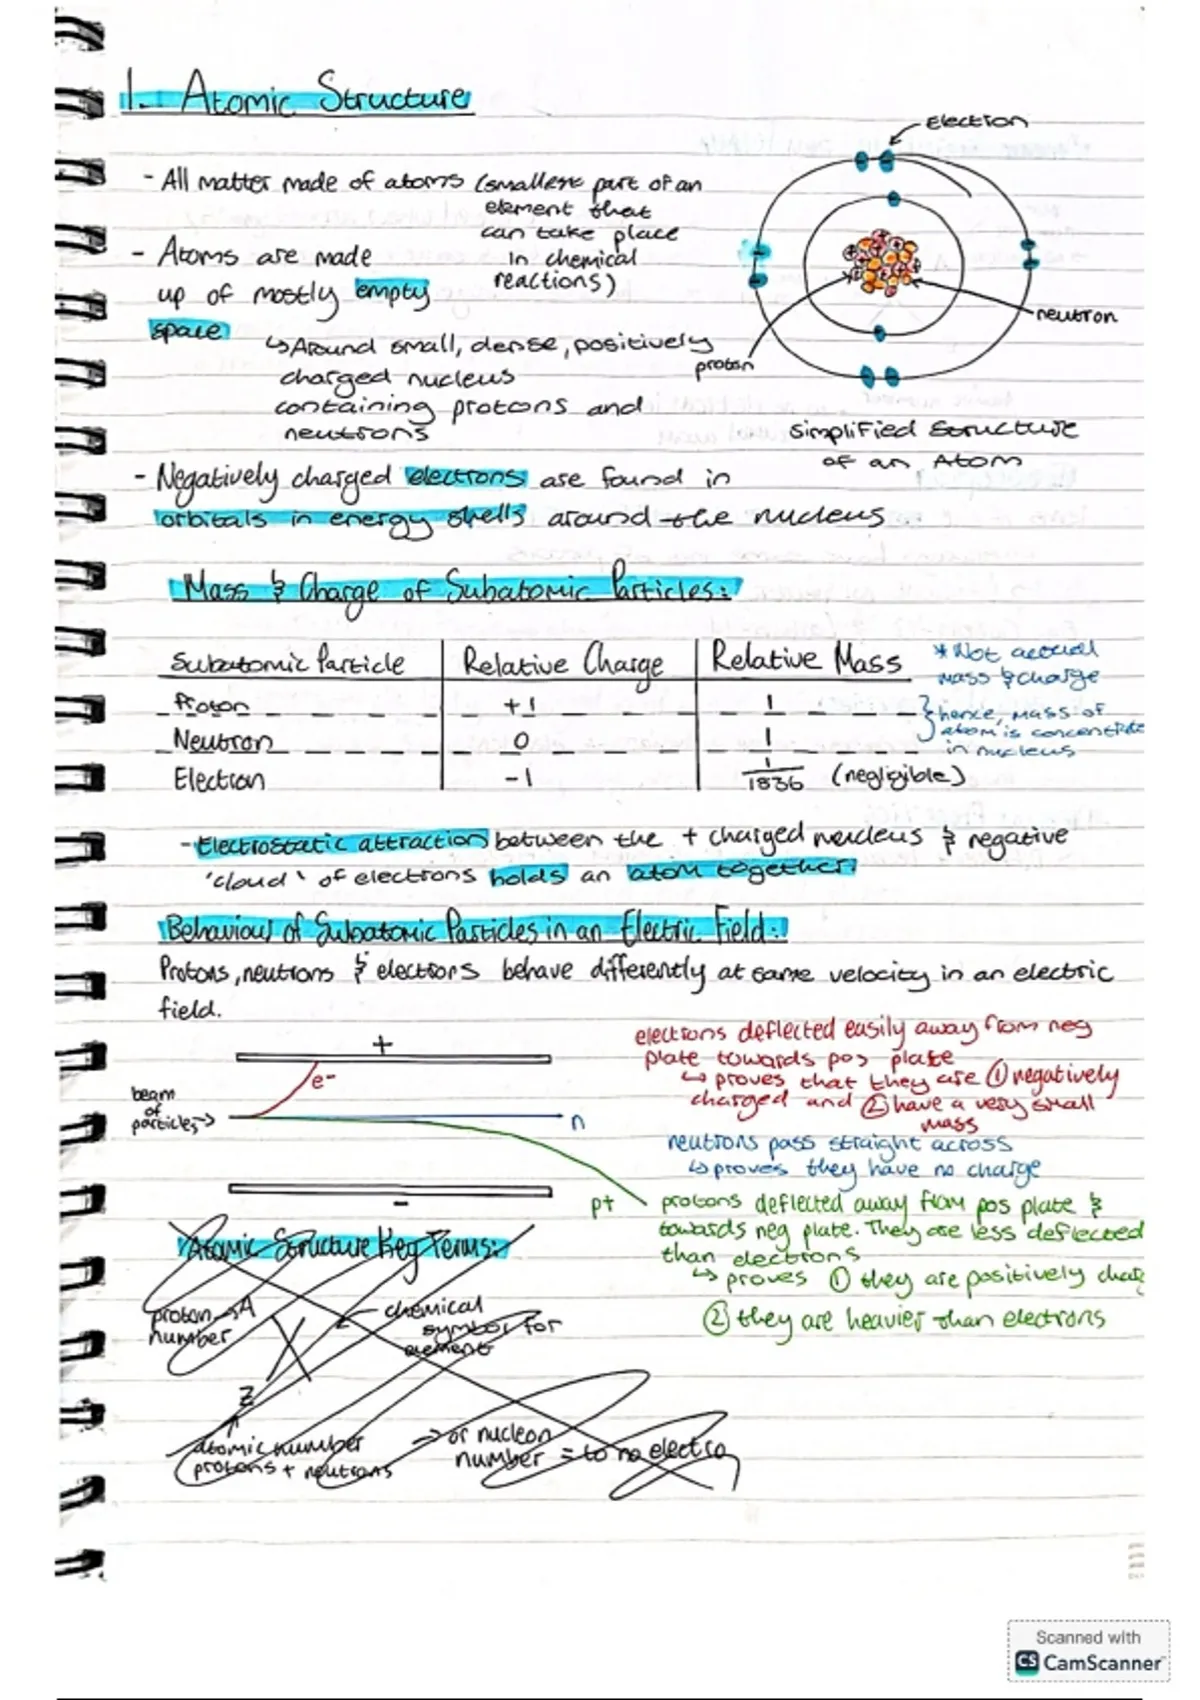 1. Atomic Structure
Electron
- All matter made of atoms (smallest part of an
element that
can take place
in chemical
reactions)
- Atoms are made
up of mostly empty
space
↳ Around small, dense, positively
charged nucleus
containing protons and
neutrons
neutron
proton
Simplified Structure
of an Atom
- Negatively charged electrons are found in
orbitals in energy shells around the nucleus
Mass & Charge of Subatomic Particles:
Subatomic Particle | Relative Charge | Relative Mass
Proton +1 1
Neutron 0 1
Electron -1 1/1836 (negligible)
* Not actual
mass & charge
} hence, mass of
atom is concentrate
in nucleus
- Electrostatic attraction between the + charged nucleus & negative
'cloud' of electrons holds an atom together.
Behaviour of Subatomic Particles in an Electric Field:
Protons, neutrons & electrons behave differently at same velocity in an electric
field.
+
e-
beam
of
particles →
n
-
p+
electrons deflected easily away from neg
plate towards pos plate
↳ proves that they are ① negatively
charged and ② have a very small
mass
neutrons pass straight across
↳ proves they have no charge
protons deflected away from pos plate &
towards neg plate. They are less deflected
than electrons
↳ proves ① they are positively charg
② they are heavier than electrons
Atomic Structure Key Terms:
proton → A
number
X
chemical
symbol for
element
Z
atomic number
protons + neutrons
→ or nucleon
number = to no electro
Scanned with
CS CamScanner